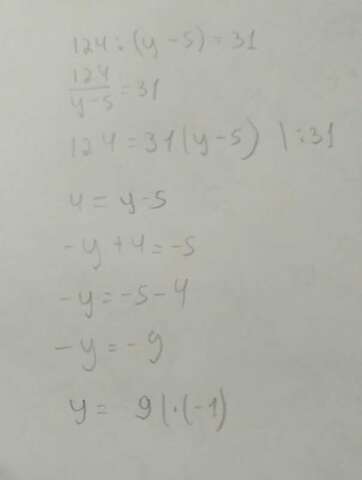 124:(y-5)=31
124/y-5=31
124=31(y-5) |:31
4=y-5
-y+4=-5
-y=-5-4
-y=-9
y= 9|·(-1)